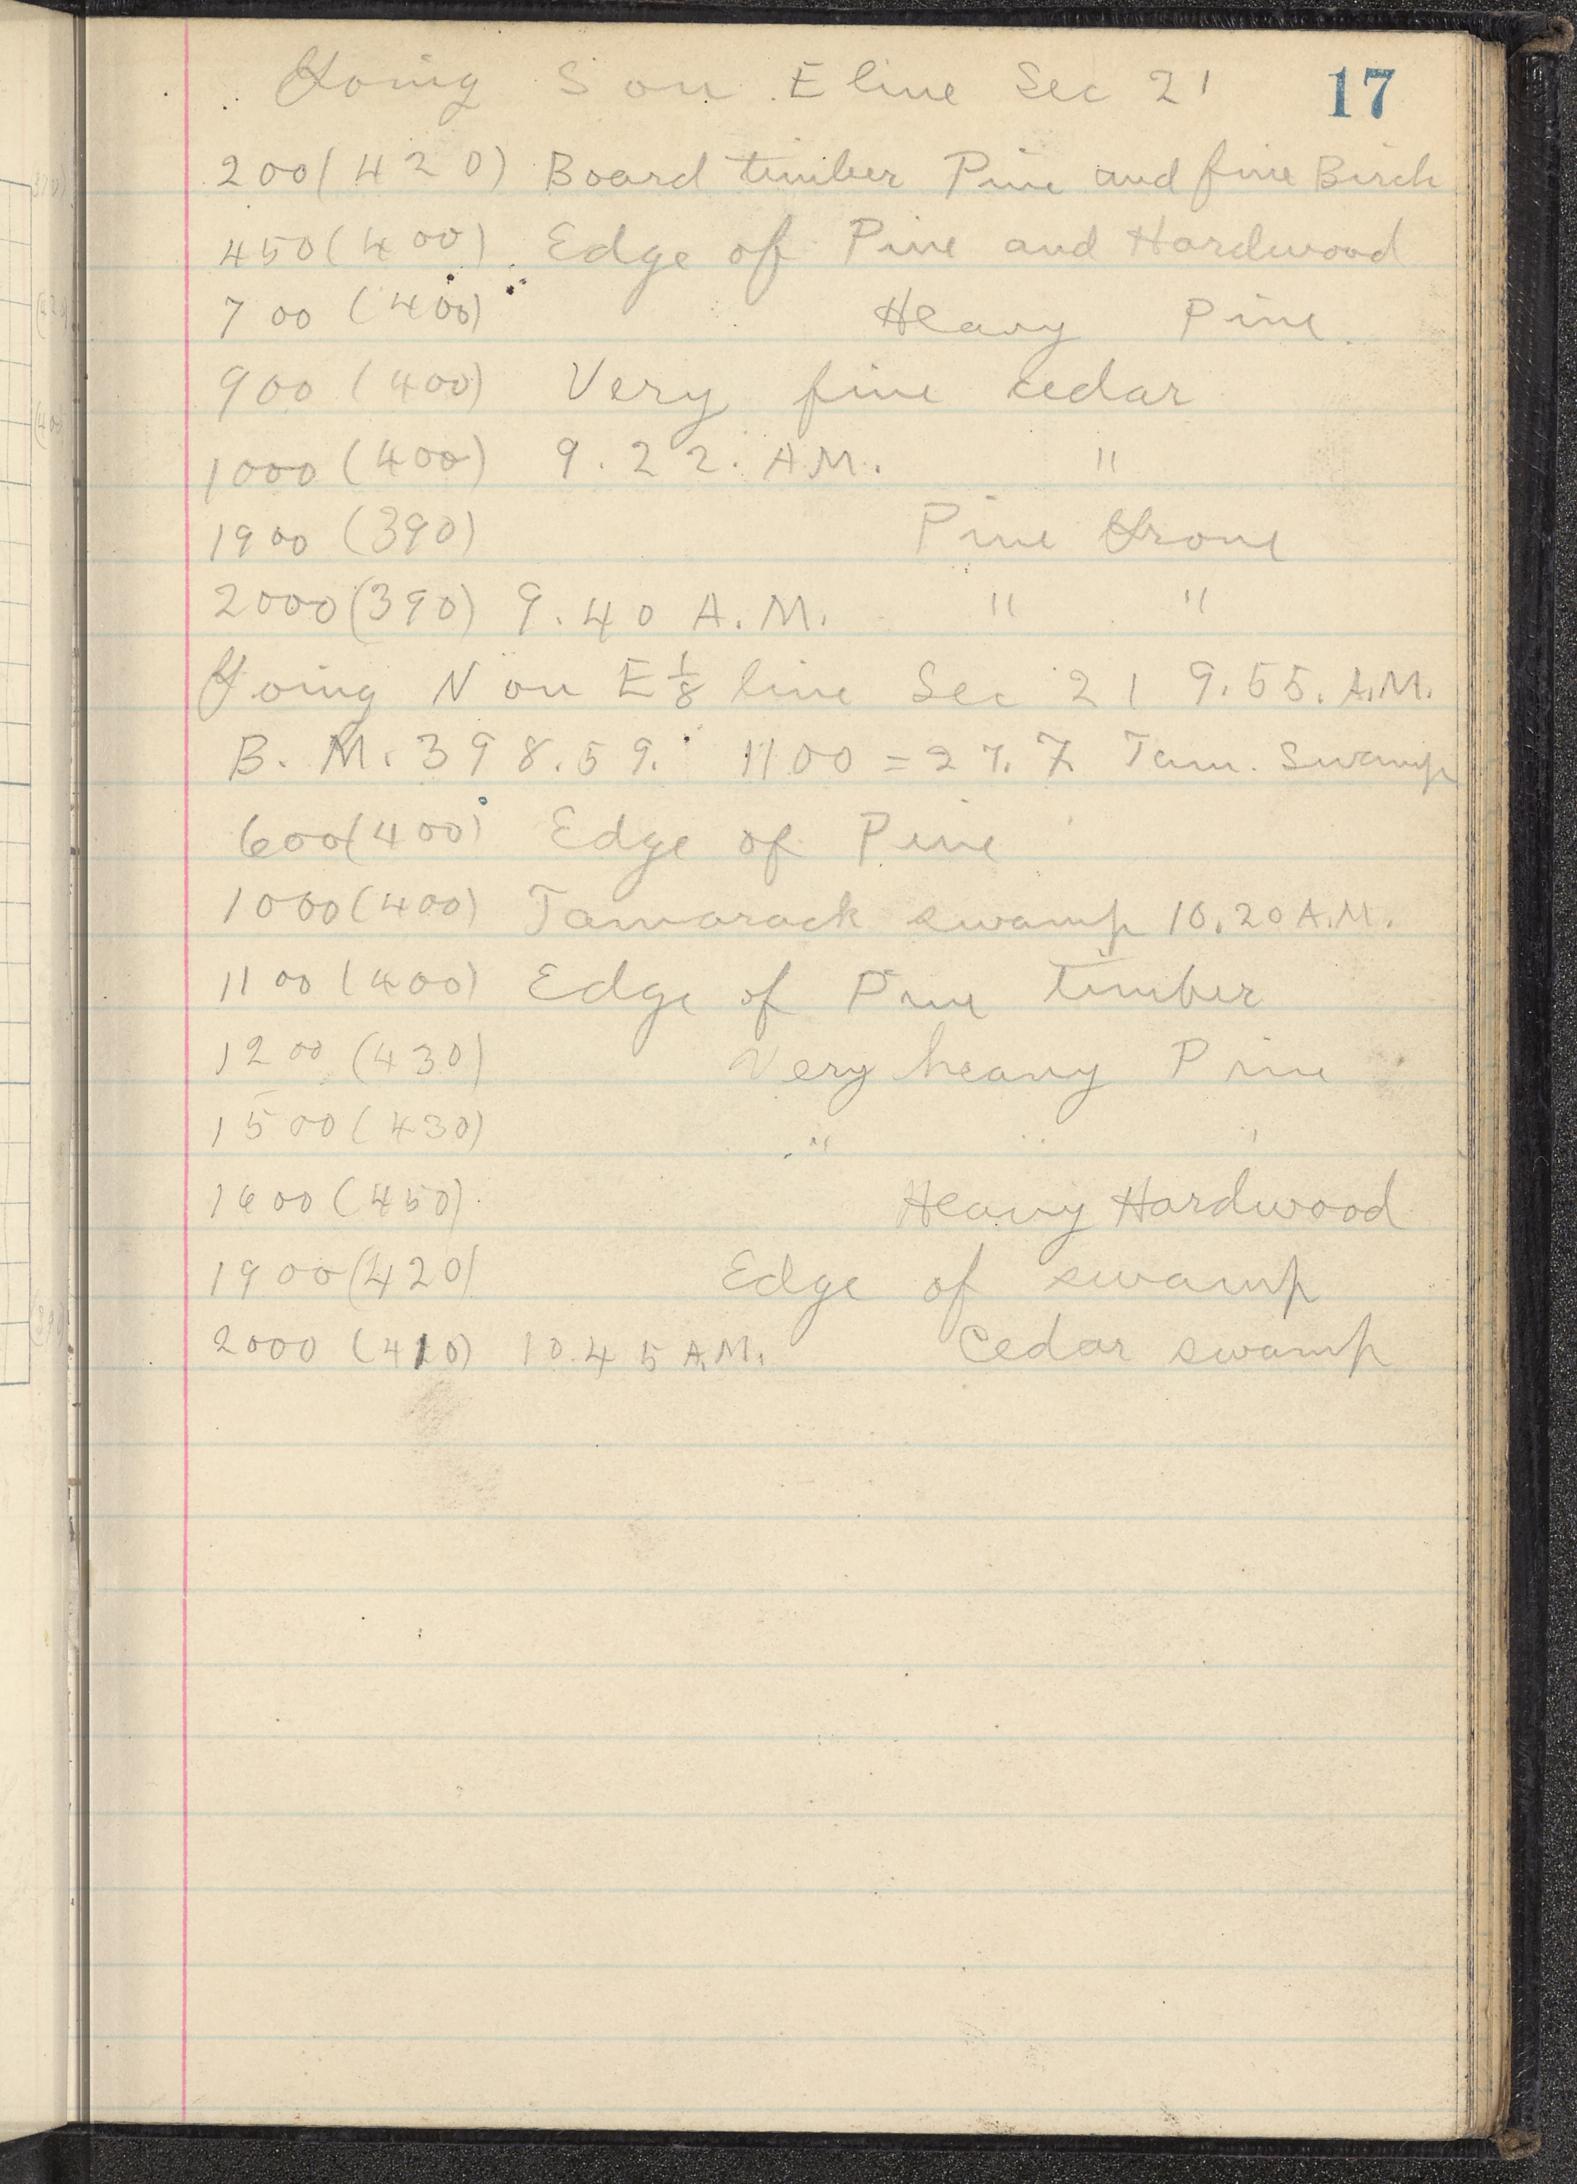 Going S on E line Sec 21 17
200(420) Board timber Pine and fine Birch
450(400) Edge of Pine and Hardwood
700 (400) Heavy Pine.
900 (400) Very fine cedar
1000 (400) 9.22. A.M. "
1900 (390) Pine Grove
2000(390) 9.40 A.M. " "
Going N on E 1/8 line Sec 21 9.55. A.M.
B.M. 398.59. 1100 = 27.7 Tam. Swamp
600(400) Edge of Pine
1000(400) Tamarack swamp 10.20 A.M.
1100 (400) Edge of Pine timber
1200 (430) Very heavy Pine
1500 (430) " " "
1600 (450) Heavy Hardwood
1900(420) Edge of swamp
2000 (410) 10.45 A.M. Cedar swamp